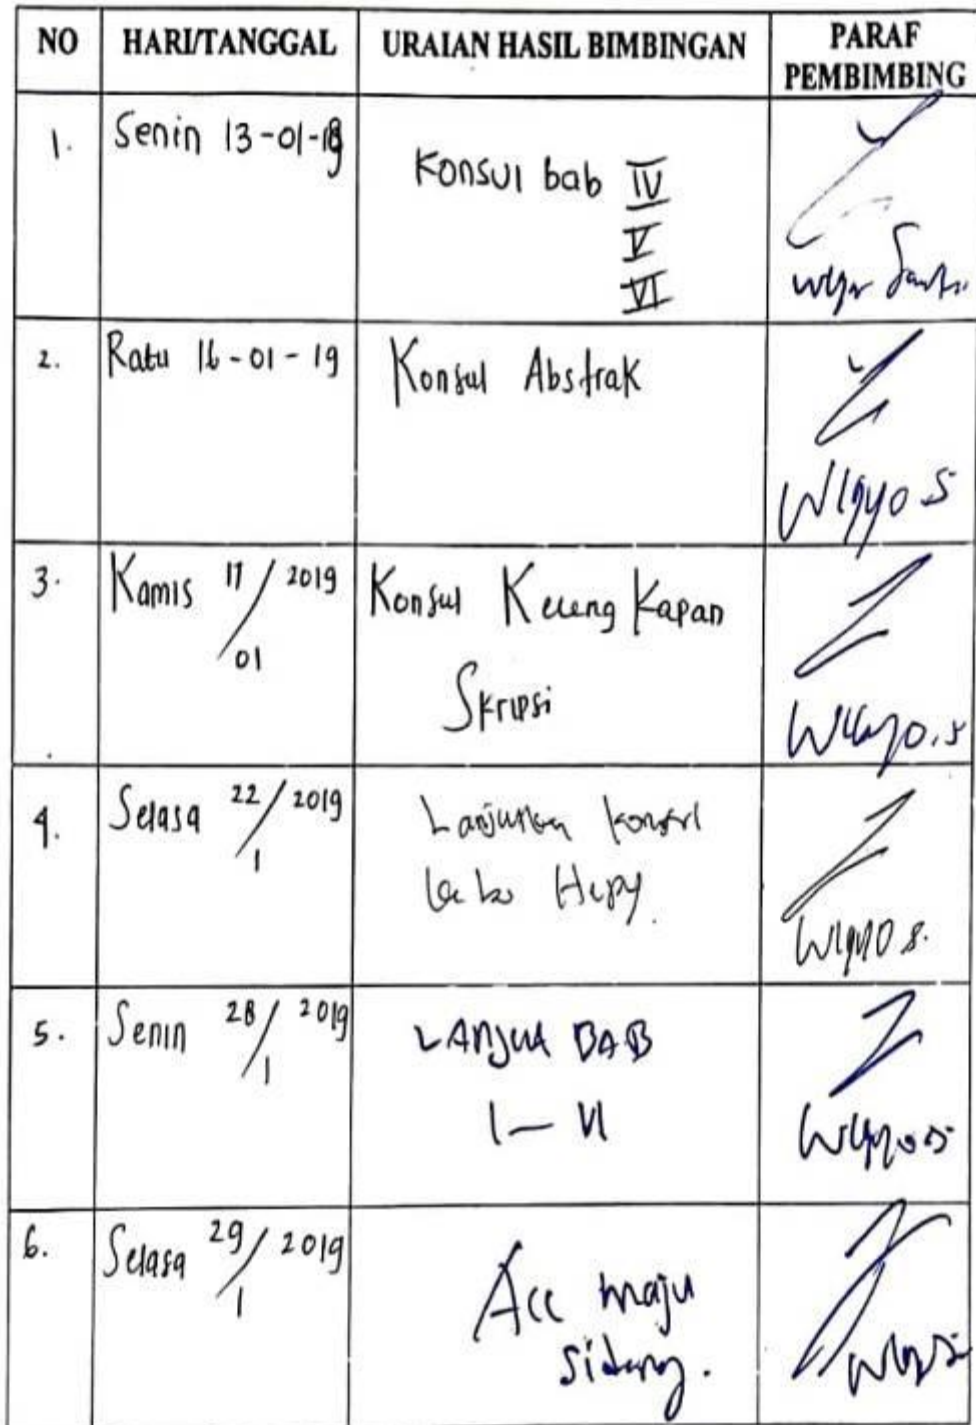 NO HARI/TANGGAL URAIAN HASIL BIMBINGAN PARAF PEMBIMBING
1. Senin 13-01-19 Konsul bab IV
V
VI
2. Rabu 16-01-19 Konsul Abstrak
Wigyo S
3. Kamis 17/01 2019 Konsul Kelengkapan
Skripsi
Wigyo.S
4. Selasa 22/1 2019 Lanjutkan konsul
Hepy.
Wigyo S.
5. Senin 28/1 2019 LANJUT BAB
I - VI
Wigyo S
6. Selasa 29/1 2019 Acc maju
sidang.